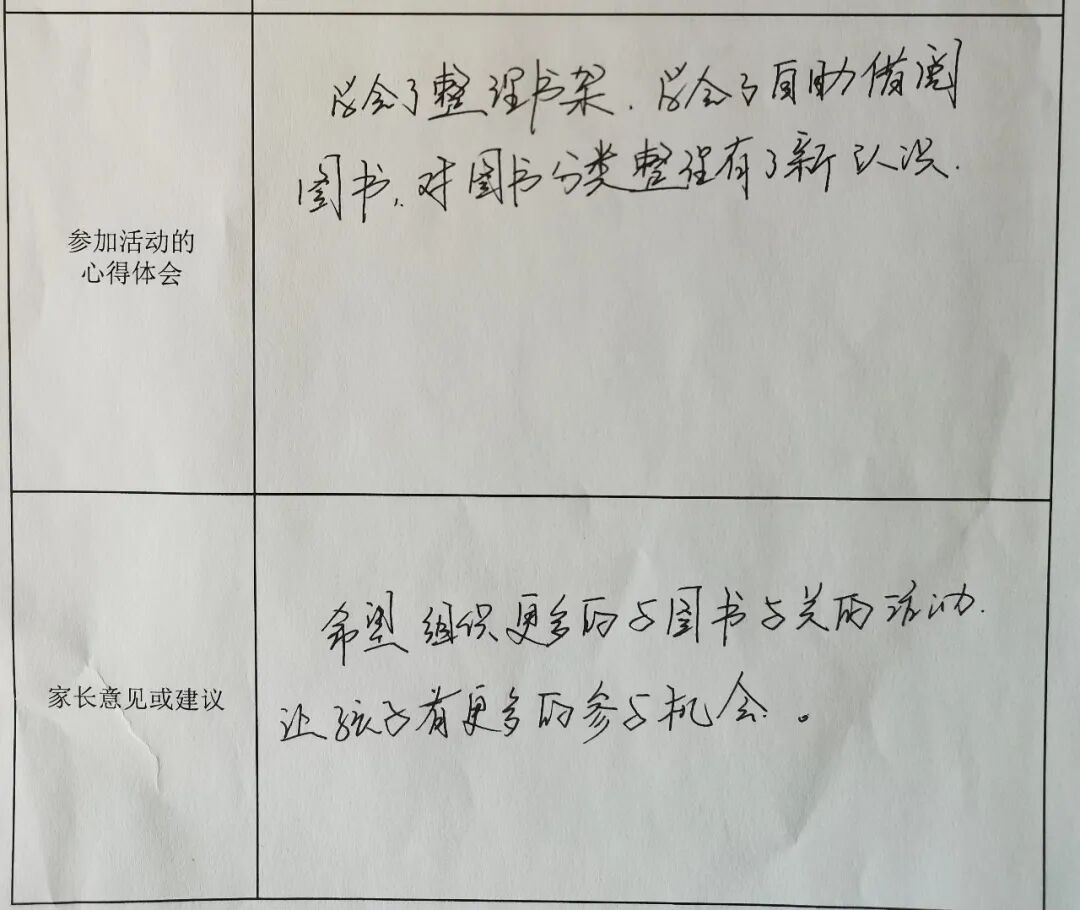 学会了整理书架.学会了自助借阅
图书,对图书分类整理有了新认识.
参加活动的
心得体会
希望组织更多的与图书与关的活动.
让孩子有更多的参与机会。
家长意见或建议